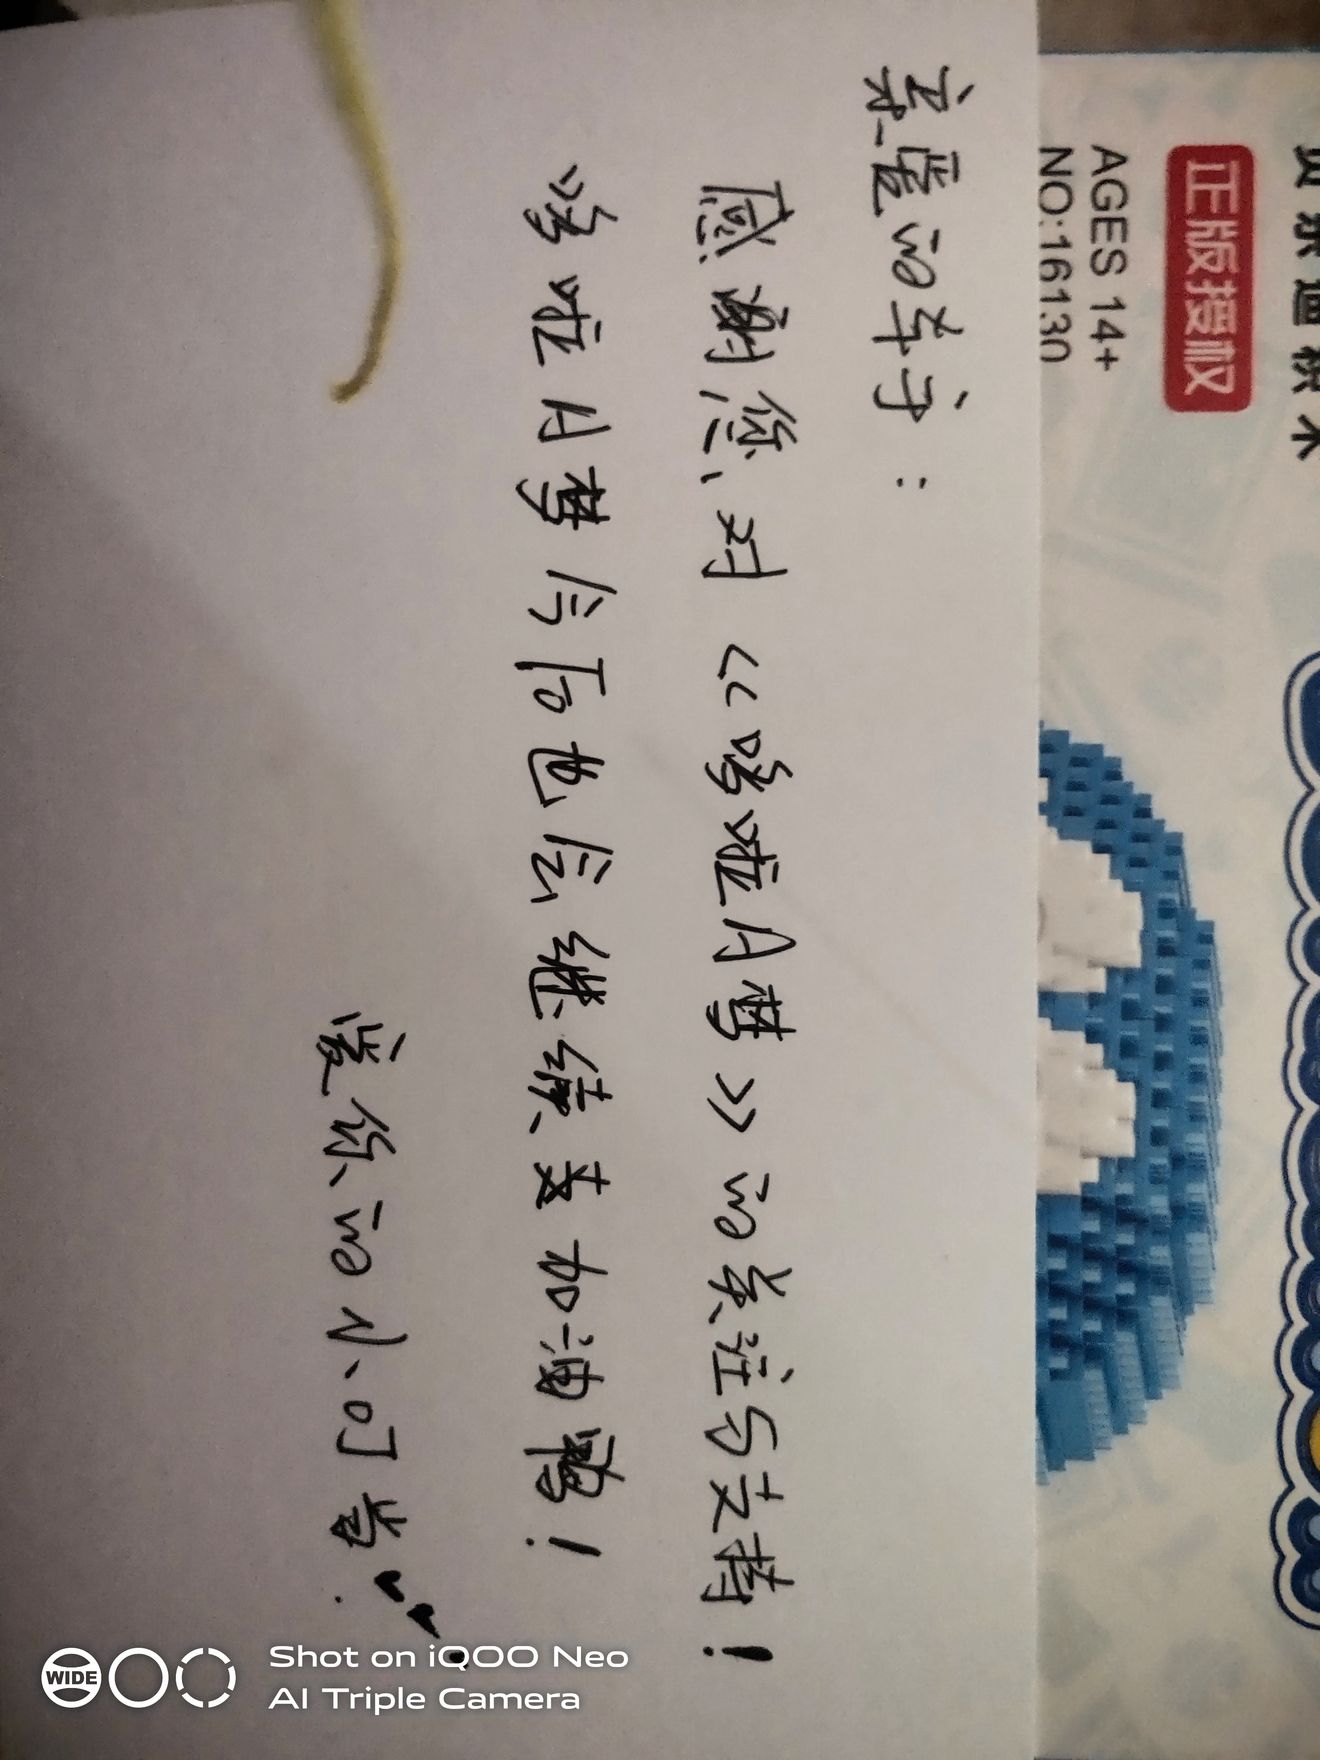 正版授权
AGES 14+
NO:16130
积木
亲爱的
感谢您对《哆啦A梦》的关注与支持!
哆啦A梦今后也会继续加油鸭!
爱你的小可
WIDE
Shot on iQOO Neo
AI Triple Camera